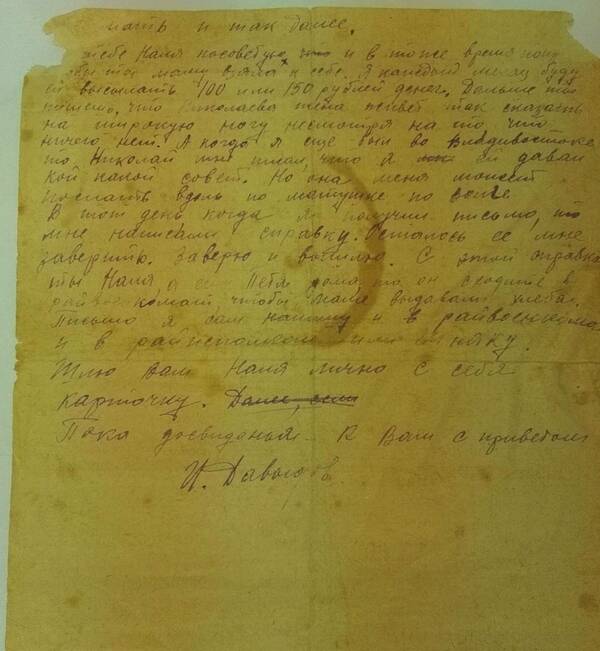 мать и так далее.
тебе Наля посоветую и в тоже время хочу
бы ты маму взяла к себе. Я каждый месяц буду
ей высылать 100 или 150 рублей денег. Дальше ты
пишешь, что Николаева жена живет так сказать
на широкую ногу несмотря на то что
ничего нет. А когда я еще был во Владивостоке
то Николай мне писал, что я ей давал
кой какой совет. Но она меня может
послать вдоль по матушке по волге
В тот день когда я получил письмо, то
мне написали справку. Осталось ее мне
заверить. Заверю и вышлю. С этой справкой
ты Наля, а если Петя дома, то он сходите в
райвоенкомат, чтобы маме выдавали хлеба.
Письмо я сам напишу и в райвоенкомат
и в райисполком
Шлю Вам Наля лично с себя
карточку. Далее, если
Пока досвиданья. К Вам с приветом
И. Давыдов.